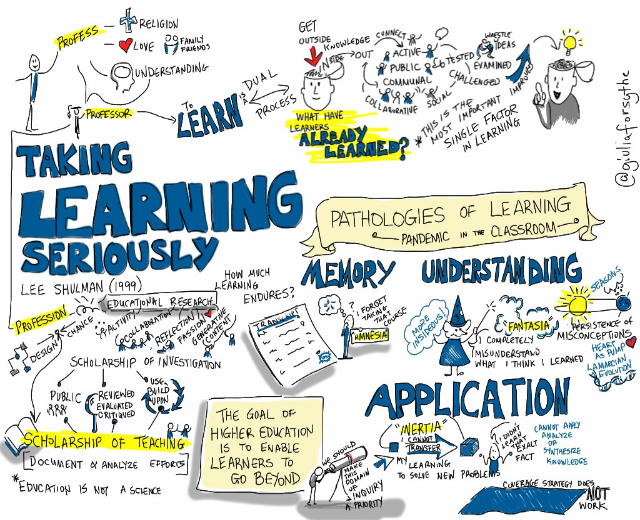 PROFESS
RELIGION
LOVE
FAMILY
FRIENDS
UNDERSTANDING
PROFESSOR
TO
LEARN
DUAL
PROCESS
GET
OUTSIDE
KNOWLEDGE
INSIDE → OUT
CONNECT
ACTIVE
PUBLIC
COMMUNAL
COLLABORATIVE
SOCIAL
WRESTLE
IDEAS
TESTED
EXAMINED
CHALLENGED
IMPROVED
WHAT HAVE
LEARNERS
ALREADY
LEARNED?
* THIS IS THE
MOST IMPORTANT
SINGLE FACTOR
IN LEARNING
@giuliaforsythe
TAKING
LEARNING
SERIOUSLY
LEE SHULMAN (1999)
PATHOLOGIES OF LEARNING
PANDEMIC IN THE CLASSROOM
PROFESSION
CHANCE
DESIGN
EDUCATIONAL RESEARCH
COLLABORATION
REFLECTION
PASSION
CONTENT
SCHOLARSHIP OF INVESTIGATION
PUBLIC
REVIEWED
EVALUATED
CRITIQUED
USE
BUILD
UPON
SCHOLARSHIP OF TEACHING
DOCUMENT & ANALYZE EFFORTS
* EDUCATION IS NOT A SCIENCE
HOW MUCH
LEARNING
ENDURES?
MEMORY
I FORGET
TAKING
THAT
COURSE
AMNESIA
UNDERSTANDING
MORE
INSIDIOUS!
FANTASIA
COMPLETELY
MISUNDERSTAND
WHAT I THINK I LEARNED
SEASONS
PERSISTENCE OF
MISCONCEPTIONS
HEART
AS PUMP
LAMARCKIAN
EVOLUTION
APPLICATION
INERTIA
I CANNOT
TRANSFER
MY LEARNING
TO SOLVE NEW PROBLEMS
I DIDN'T
LEARN
THAT
EXACT
FACT
CANNOT APPLY
ANALYZE
OR
SYNTHESIZE
KNOWLEDGE
COVERAGE STRATEGY DOES
NOT
WORK
THE GOAL OF
HIGHER EDUCATION
IS TO ENABLE
LEARNERS TO
GO BEYOND
WE SHOULD
MAKE
THIS
DOMAIN
OF
INQUIRY
A PRIORITY